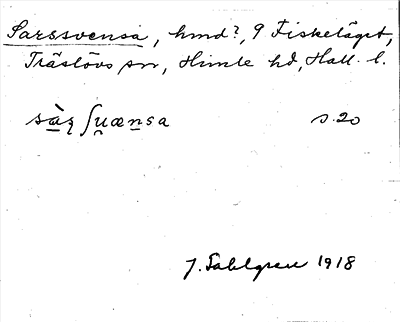 Sarssvensa, hmd?, 9 Fiskeläget,
Träslövs sn, Himle hd, Hall. l.
s. 20
J. Sahlgren 1918